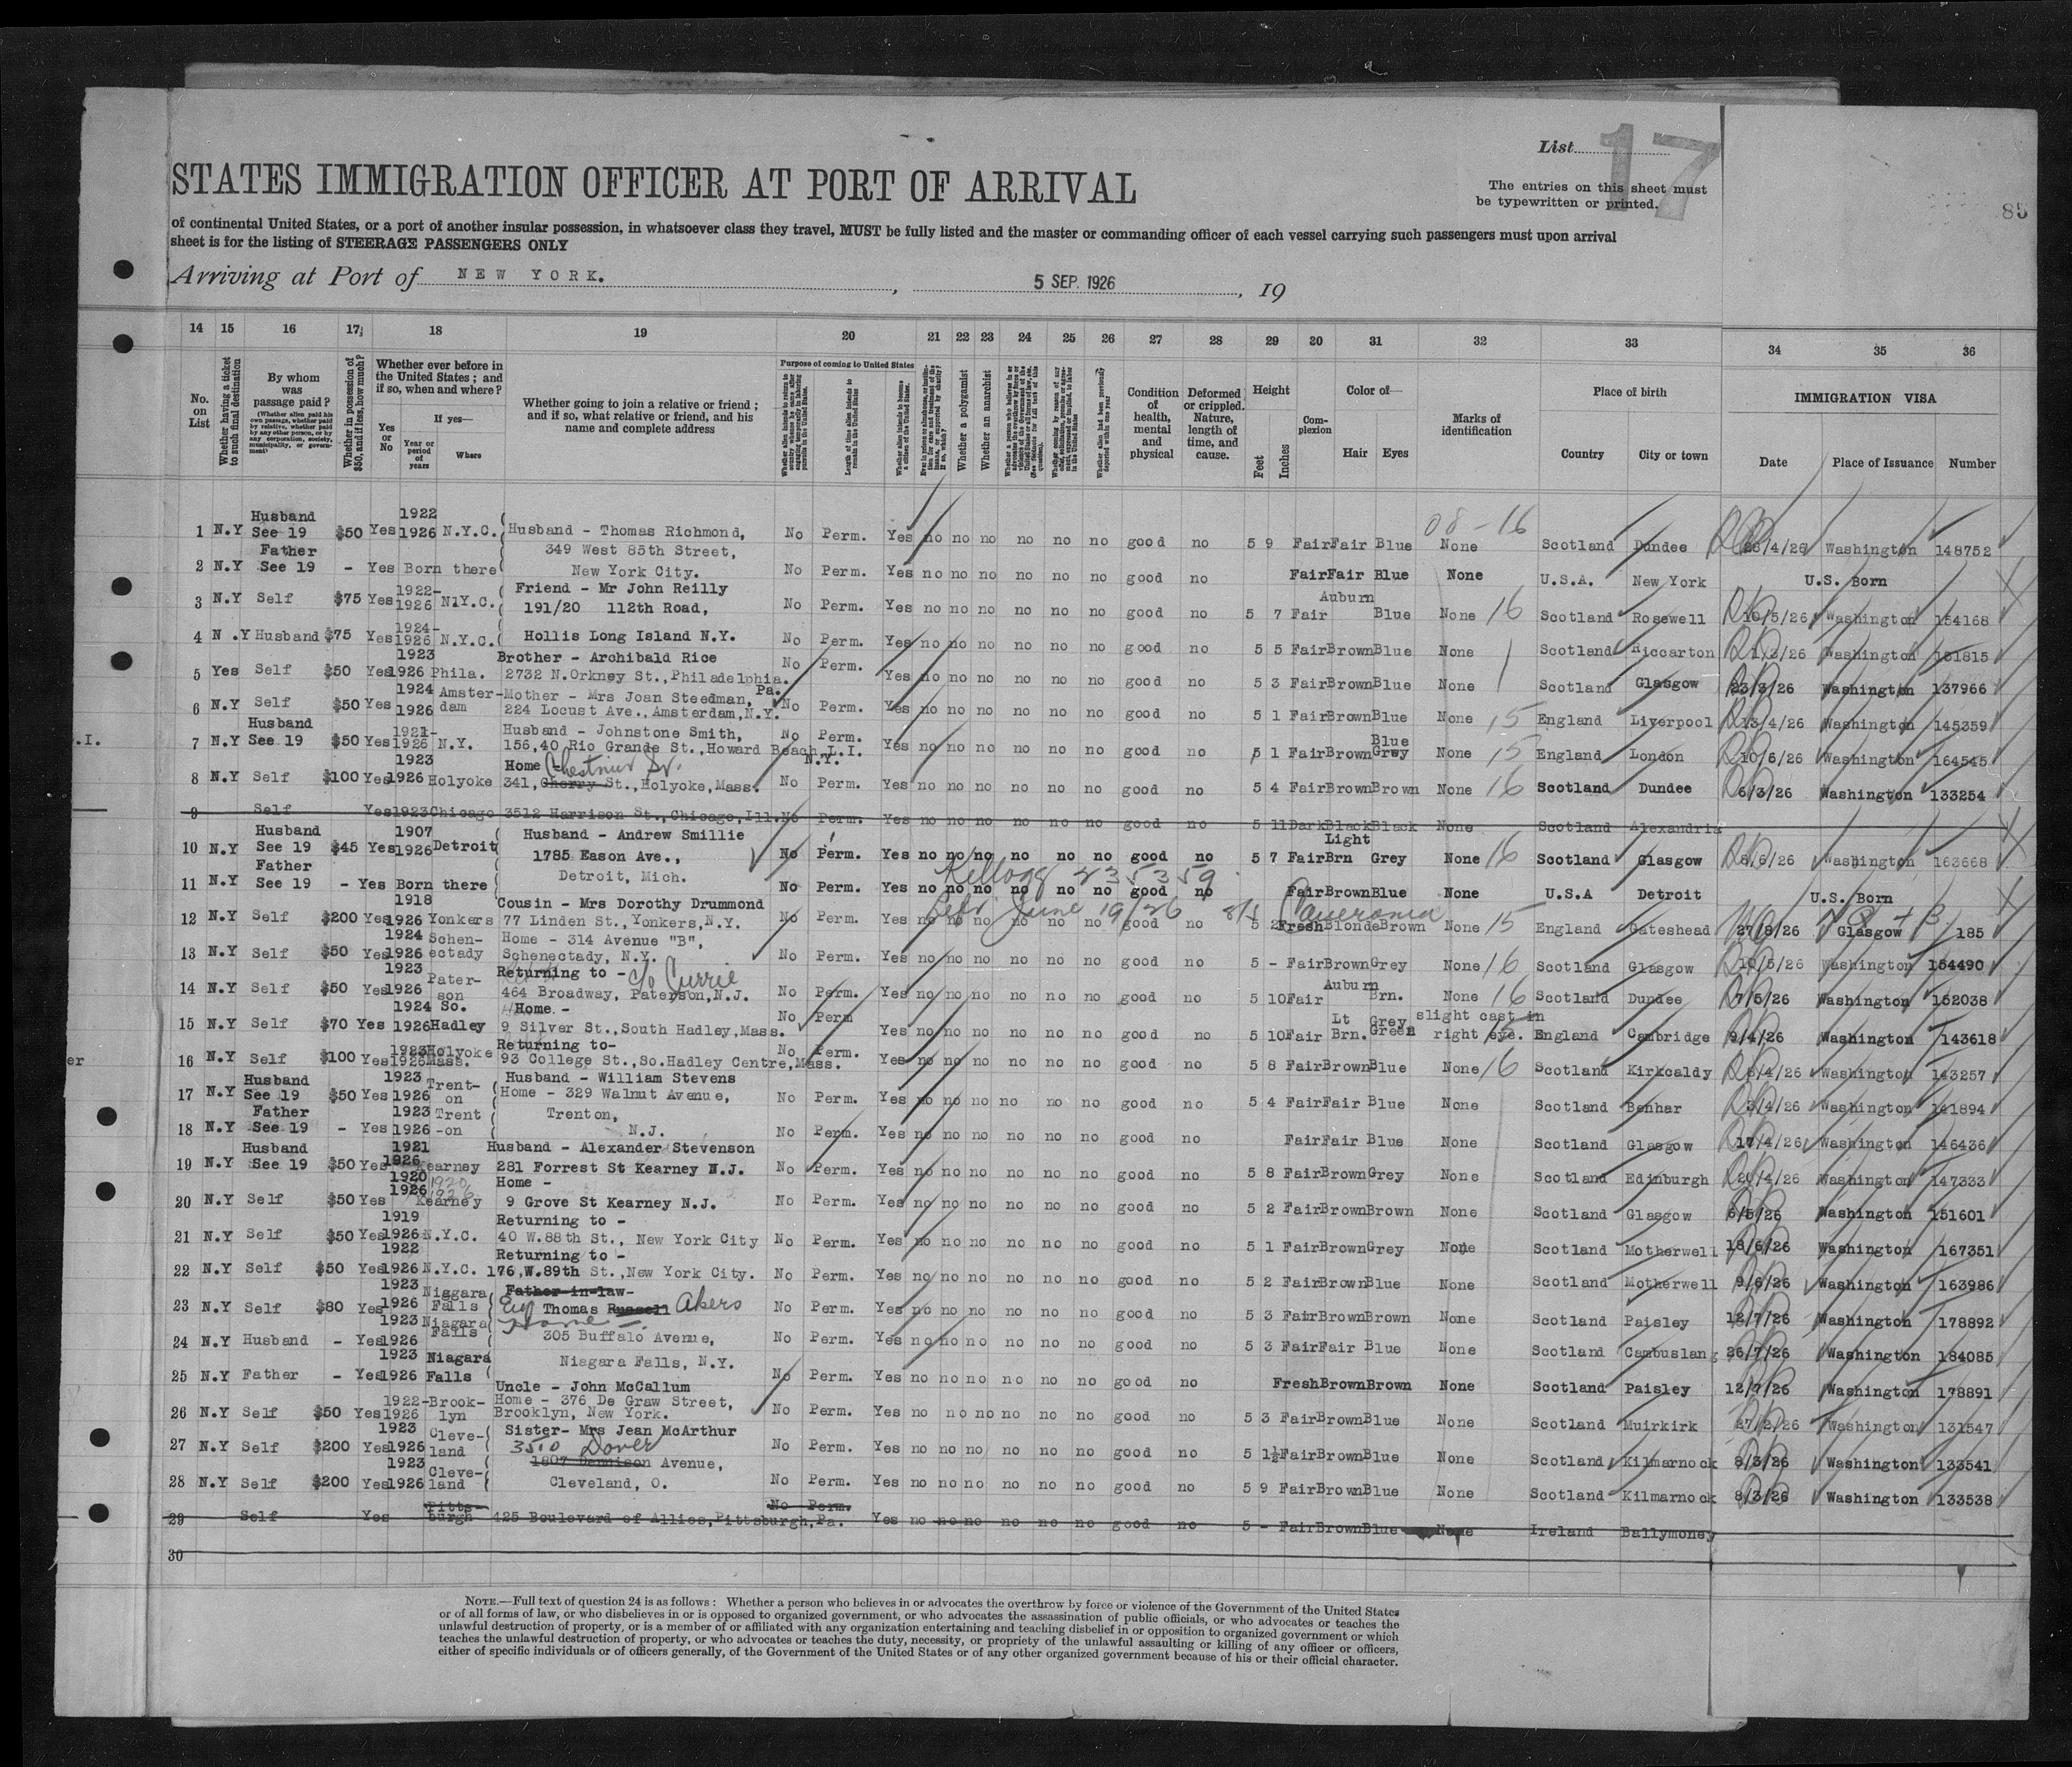 List 17
STATES IMMIGRATION OFFICER AT PORT OF ARRIVAL
The entries on this sheet must
be typewritten or printed.
85
of continental United States, or a port of another insular possession, in whatsoever class they travel, MUST be fully listed and the master or commanding officer of each vessel carrying such passengers must upon arrival
sheet is for the listing of STEERAGE PASSENGERS ONLY
Arriving at Port of NEW YORK. , 5 SEP. 1926 , 19
14 15 16 17 18 19 20 21 22 23 24 25 26 27 28 29 20 31 32 33 34 35 36
No. on List
Whether having a ticket to such final destination
By whom was passage paid?
(Whether alien paid his own passage, whether paid by relative, whether paid by any other person, or by any corporation, society, municipality, or government)
Whether in possession of $50, and if less, how much?
Whether ever before in the United States; and if so, when and where?
Yes or No
If yes—
Year or period of years
Where
Whether going to join a relative or friend; and if so, what relative or friend, and his name and complete address
Purpose of coming to United States
Length of time alien intends to remain in the United States
Whether alien intends to become a citizen of the United States.
Whether a polygamist
Whether an anarchist
Condition of health, mental and physical
Deformed or crippled. Nature, length of time, and cause.
Height
Feet
Inches
Complexion
Color of—
Hair
Eyes
Marks of identification
Place of birth
Country
City or town
IMMIGRATION VISA
Date
Place of Issuance
Number
08-16
1 N.Y Husband See 19 $50 Yes 1922 1926 N.Y.C. Husband - Thomas Richmond, No Perm. Yes no no no no no no good no 5 9 Fair Fair Blue None Scotland Dundee 28/4/26 Washington 148752
349 West 85th Street,
2 N.Y Father See 19 - Yes Born there New York City. No Perm. Yes no no no no no no good no Fair Fair Blue None U.S.A. New York U.S. Born
3 N.Y Self $75 Yes 1922-1926 N.Y.C. Friend - Mr John Reilly No Perm. Yes no no no no no no good no 5 7 Fair Auburn Blue None 16 Scotland Rosewell 10/5/26 Washington 154168
191/20 112th Road,
4 N.Y Husband $75 Yes 1924-1926 N.Y.C. Hollis Long Island N.Y. No Perm. Yes no no no no no no good no 5 5 Fair Brown Blue None Scotland Riccarton Washington 151815
5 Yes Self $50 Yes 1923 1926 Phila. Brother - Archibald Rice No Perm. Yes no no no no no no good no 5 3 Fair Brown Blue None Scotland Glasgow 23/3/26 Washington 137966
2732 N.Orkney St.,Philadelphia. Pa.
6 N.Y Self $50 Yes 1924 1926 Amster-dam Mother - Mrs Joan Steedman, No Perm. Yes no no no no no no good no 5 1 Fair Brown Blue None 15 England Liverpool 13/4/26 Washington 145359
224 Locust Ave.,Amsterdam,N.Y.
7 N.Y Husband See 19 $50 Yes 1921-1926 N.Y. Husband - Johnstone Smith, No Perm. Yes no no no no no no good no 5 1 Fair Brown Blue Grey None 15 England London 10/6/26 Washington 164545
156,40 Rio Grande St.,Howard Beach L.I. N.Y.
8 N.Y Self $100 Yes 1923 1926 Holyoke Home - Chestnut St. No Perm. Yes no no no no no no good no 5 4 Fair Brown Brown None 16 Scotland Dundee 6/3/26 Washington 133254
341, Cherry St.,Holyoke,Mass.
9 Self Yes 1923 Chicago 3512 Harrison St.,Chicago,Ill. No Perm. Yes no no no no no no good no 5 11 Dark Black Black None Scotland Alexandria
10 N.Y Husband See 19 $45 Yes 1907 1926 Detroit Husband - Andrew Smillie No Perm. Yes no no no no no no good no 5 7 Fair Light Brn Grey None 16 Scotland Glasgow 8/6/26 Washington 163668
1785 Eason Ave.,
Kellogg 235359
11 N.Y Father See 19 - Yes Born there Detroit, Mich. No Perm. Yes no no no no no no good no Fair Brown Blue None U.S.A Detroit U.S. Born
June 19/26 Cameronia
12 N.Y Self $200 Yes 1918 1926 Yonkers Cousin - Mrs Dorothy Drummond No Perm. Yes no no no no no no good no 5 2 Fresh Blonde Brown None 15 England Gateshead 27/8/26 Glasgow 185
77 Linden St.,Yonkers,N.Y.
13 N.Y Self $50 Yes 1924 1926 Schen-ectady Home - 314 Avenue "B", No Perm. Yes no no no no no no good no 5 - Fair Brown Grey None 16 Scotland Glasgow 10/5/26 Washington 154490
Schenectady, N.Y.
14 N.Y Self $50 Yes 1923 1926 Pater-son Returning to - c/o Currie No Perm. Yes no no no no no no good no 5 10 Fair Auburn Brn. None 16 Scotland Dundee 7/5/26 Washington 152038
464 Broadway, Paterson,N.J.
15 N.Y Self $70 Yes 1924 1926 So. Hadley Home - No Perm Yes no no no no no no good no 5 10 Fair Lt Brn. Grey Green slight cast in right eye. England Cambridge 9/4/26 Washington 143618
9 Silver St.,South Hadley,Mass.
16 N.Y Self $100 Yes 1923 1926 Holyoke Mass. Returning to- No Perm. Yes no no no no no no good no 5 8 Fair Brown Blue None 16 Scotland Kirkcaldy 8/4/26 Washington 143257
93 College St.,So.Hadley Centre,Mass.
17 N.Y Husband See 19 $50 Yes 1923 1926 Trent-on Husband - William Stevens No Perm. Yes no no no no no no good no 5 4 Fair Fair Blue None Scotland Benhar 3/4/26 Washington 141894
Home - 329 Walnut Avenue,
18 N.Y Father See 19 - Yes 1923 1926 Trent-on Trenton, N.J. No Perm. Yes no no no no no no good no Fair Fair Blue None Scotland Glasgow 17/4/26 Washington 146436
19 N.Y Husband See 19 $50 Yes 1921 1926 Kearney Husband - Alexander Stevenson No Perm. Yes no no no no no no good no 5 8 Fair Brown Grey None Scotland Edinburgh 20/4/26 Washington 147333
281 Forrest St Kearney N.J.
20 N.Y Self $50 Yes 1920 1926 Kearney Home - No Perm. Yes no no no no no no good no 5 2 Fair Brown Brown None Scotland Glasgow 6/5/26 Washington 151601
9 Grove St Kearney N.J.
21 N.Y Self $50 Yes 1919 1926 N.Y.C. Returning to - No Perm. Yes no no no no no no good no 5 1 Fair Brown Grey None Scotland Motherwell 18/6/26 Washington 167351
40 W.88th St., New York City
22 N.Y Self $50 Yes 1922 1926 N.Y.C. Returning to - No Perm. Yes no no no no no no good no 5 2 Fair Brown Blue None Scotland Motherwell 9/6/26 Washington 163986
176,W.89th St.,New York City.
23 N.Y Self $80 Yes 1923 1926 Niagara Falls Father-in-law- No Perm. Yes no no no no no no good no 5 3 Fair Brown Brown None Scotland Paisley 12/7/26 Washington 178892
Thomas Russell Akers
24 N.Y Husband - Yes 1923 1926 Niagara Falls Home - 305 Buffalo Avenue, No Perm. Yes no no no no no no good no 5 3 Fair Fair Blue None Scotland Cambuslang 26/7/26 Washington 184085
25 N.Y Father - Yes 1923 1926 Niagara Falls Niagara Falls, N.Y. No Perm. Yes no no no no no no good no Fresh Brown Brown None Scotland Paisley 12/7/26 Washington 178891
26 N.Y Self $50 Yes 1922-1926 Brook-lyn Uncle - John McCallum No Perm. Yes no no no no no no good no 5 3 Fair Brown Blue None Scotland Muirkirk 27/2/26 Washington 131547
Home - 376 De Graw Street,
Brooklyn, New York.
27 N.Y Self $200 Yes 1923 1926 Cleve-land Sister- Mrs Jean McArthur No Perm. Yes no no no no no no good no 5 1½ Fair Brown Blue None Scotland Kilmarnock 8/3/26 Washington 133541
3510 Dover
1807 Dennison Avenue,
28 N.Y Self $200 Yes 1923 1926 Cleve-land Cleveland, O. No Perm. Yes no no no no no no good no 5 9 Fair Brown Blue None Scotland Kilmarnock 8/3/26 Washington 133538
29 Self Yes Pitts-burgh 425 Boulevard of Allies,Pittsburgh,Pa. No Perm. Yes no no no no no no good no 5 - Fair Brown Blue None Ireland Ballymoney
30
NOTE.—Full text of question 24 is as follows: Whether a person who believes in or advocates the overthrow by force or violence of the Government of the United States
or of all forms of law, or who disbelieves in or is opposed to organized government, or who advocates the assassination of public officials, or who advocates or teaches the
unlawful destruction of property, or is a member of or affiliated with any organization entertaining and teaching disbelief in or opposition to organized government or which
teaches the unlawful destruction of property, or who advocates or teaches the duty, necessity, or propriety of the unlawful assaulting or killing of any officer or officers,
either of specific individuals or of officers generally, of the Government of the United States or of any other organized government because of his or their official character.